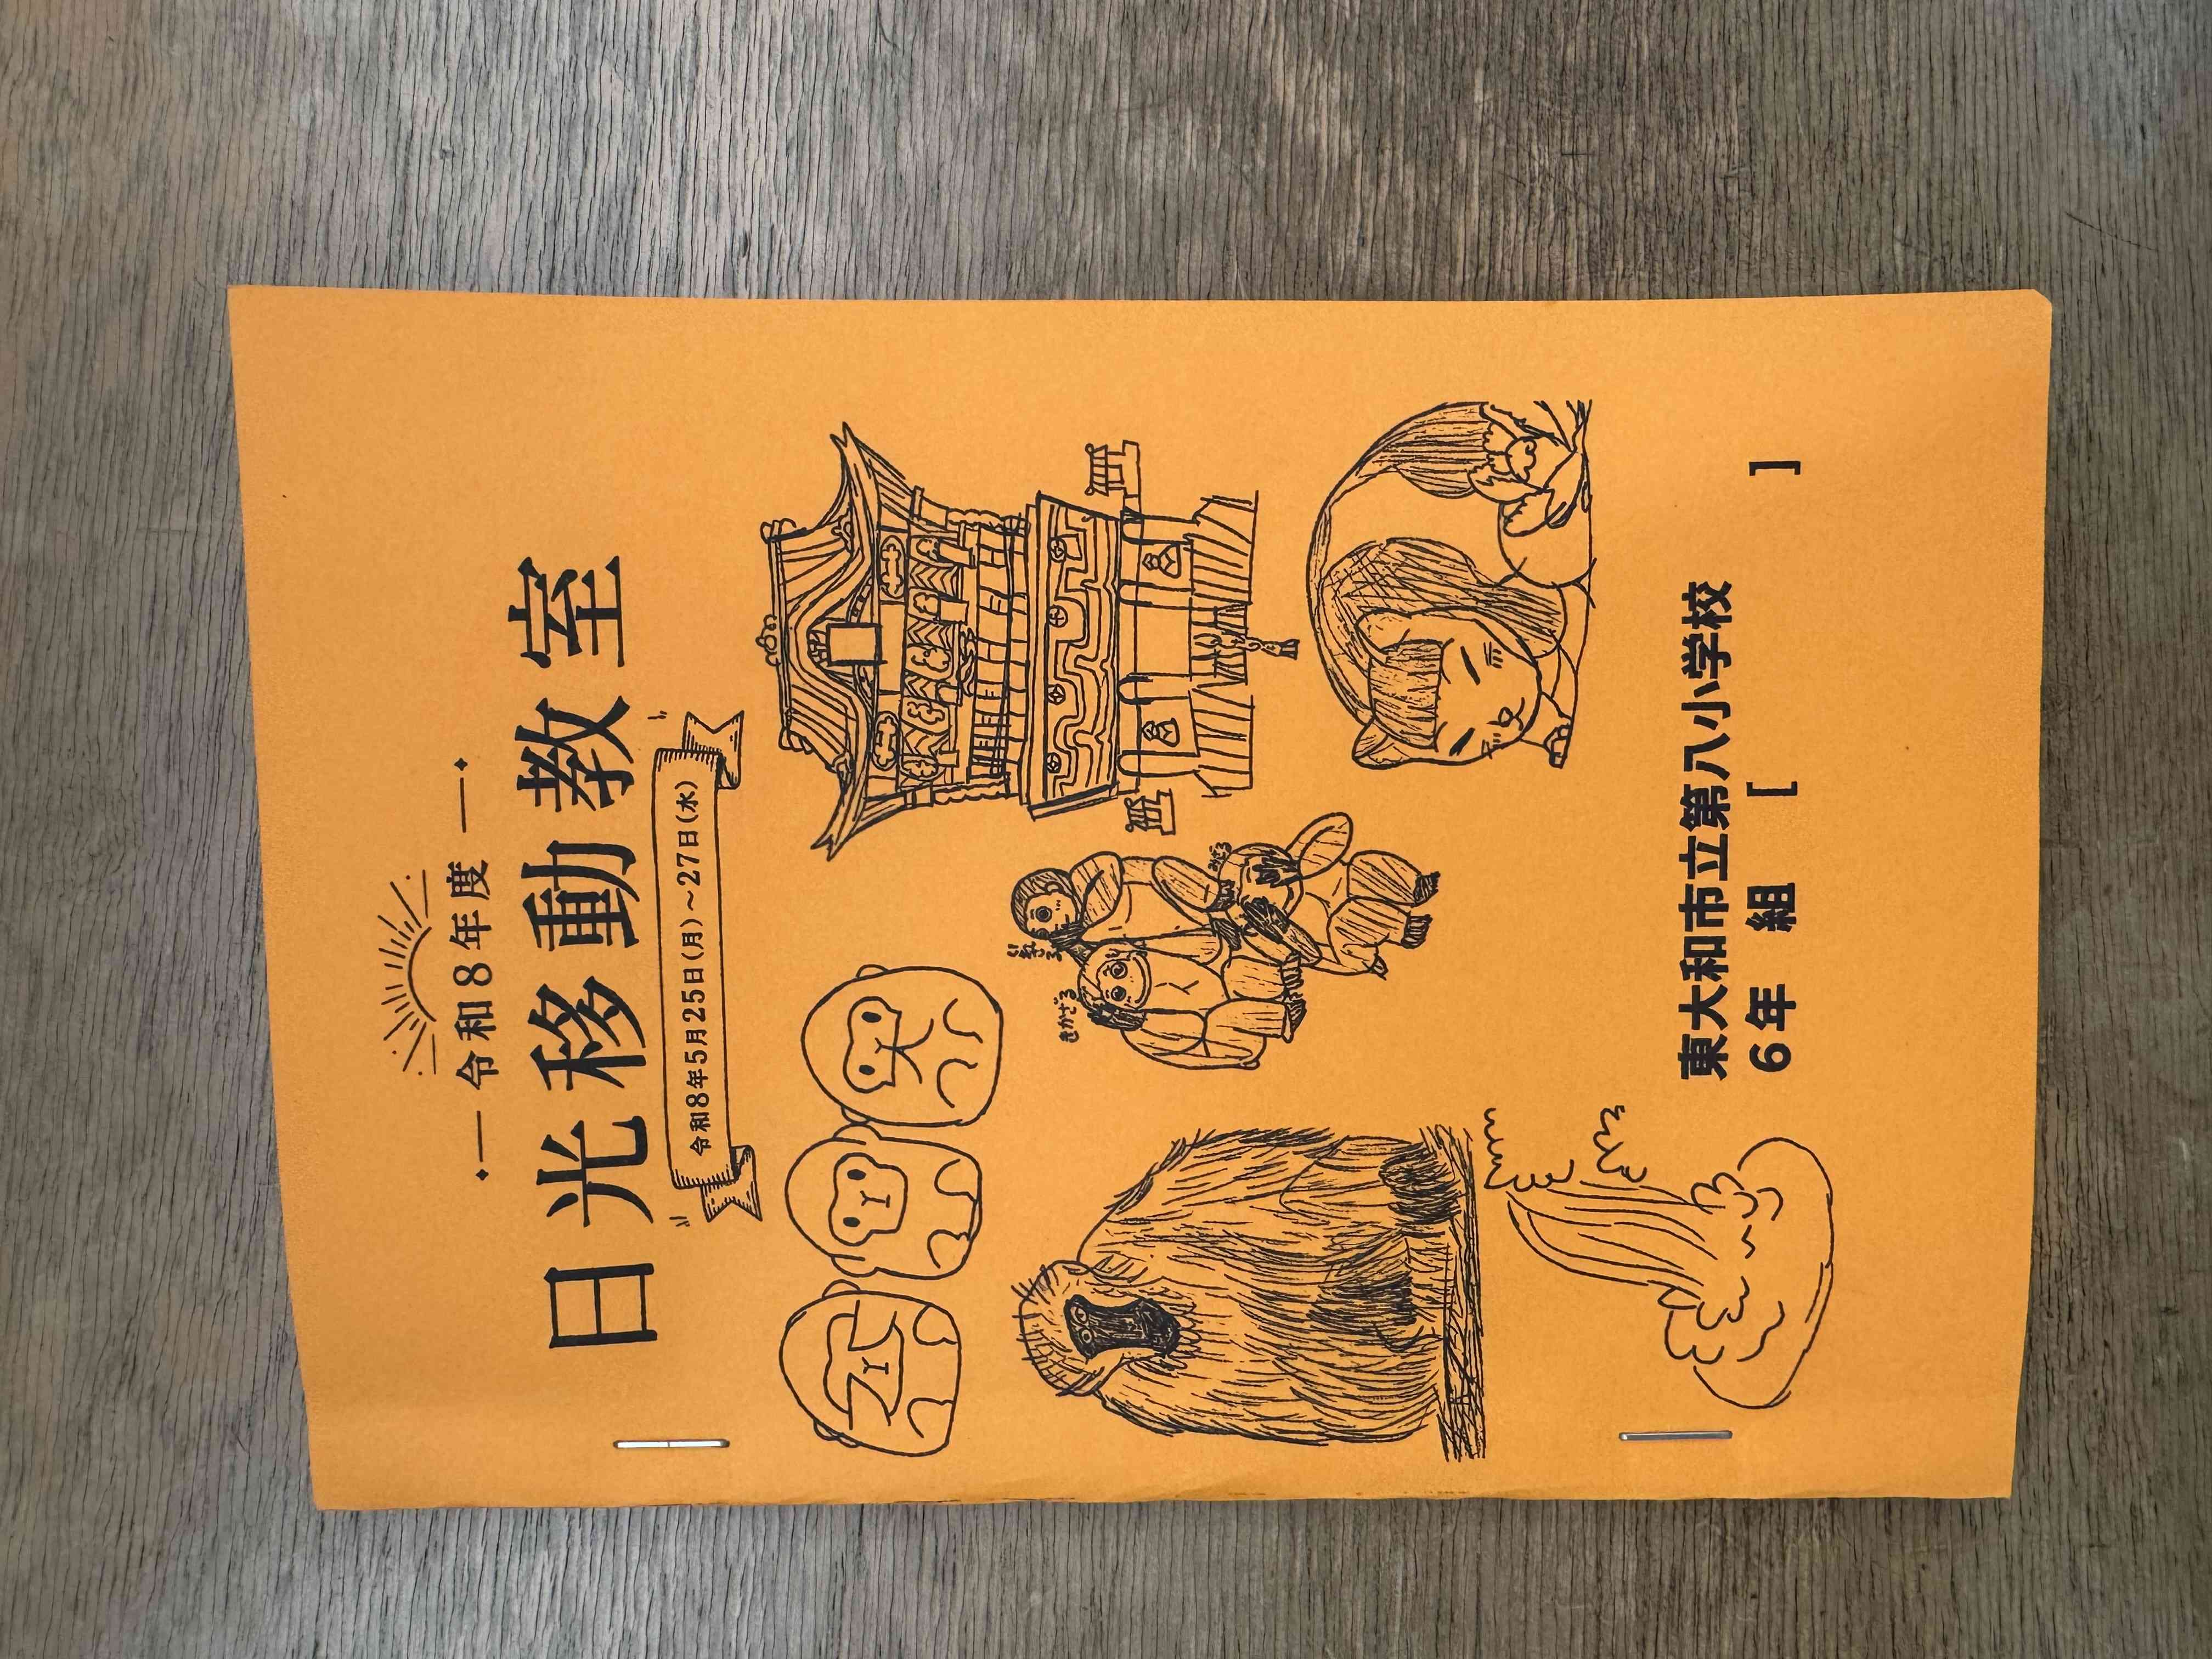 令和8年度
日光移動教室
令和8年5月25日(月)～27日(水)
いわざる
きかざる
みざる
東大和市立第八小学校
6年 組 [ ]